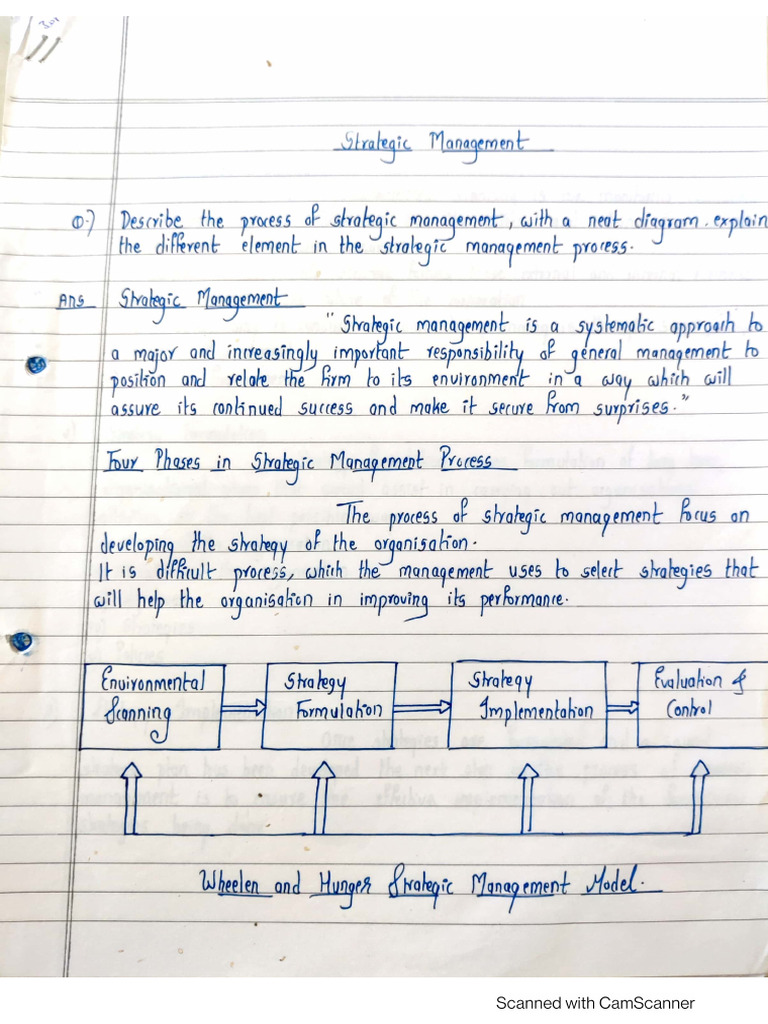 Strategic Management
Q.) Describe the process of strategic management, with a neat diagram. explain
the different element in the strategic management process.
Ans Strategic Management
"Strategic management is a systematic approach to
a major and increasingly important responsibility of general management to
position and relate the firm to its environment in a way which will
assure its continued success and make it secure from surprises."
Four Phases in Strategic Management Process
The process of strategic management focus on
developing the strategy of the organisation.
It is difficult process, which the management uses to select strategies that
will help the organisation in improving its performance.
Environmental Scanning
Strategy Formulation
Strategy Implementation
Evaluation & Control
Wheelen and Hunger Strategic Management Model.
Scanned with CamScanner